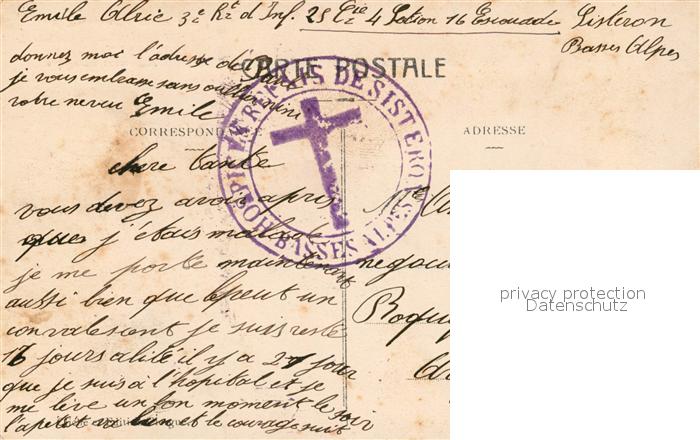 Emile Alric 3e Rt d'Inf. 25 Cie 4 Section 16 Escouade Sisteron
Basses Alpes
donnez moi l'adresse de
je vous embrasse sans oublier
votre neveu Emile
CARTE POSTALE
CORRESPONDANCE
ADRESSE
DE SISTERON
BASSES ALPES
chere tante
vous devez avoir apris
que j'étais malade
je me porte maintenant
aussi bien que lepeut un
convalescent je suis resté
16 jours alité il y a 27 jour
que je suis a l'hopital et je
me lève un bon moment le soir
l'apetit va bien et le courage suit
negoci
Roqu
privacy protection
Datenschutz